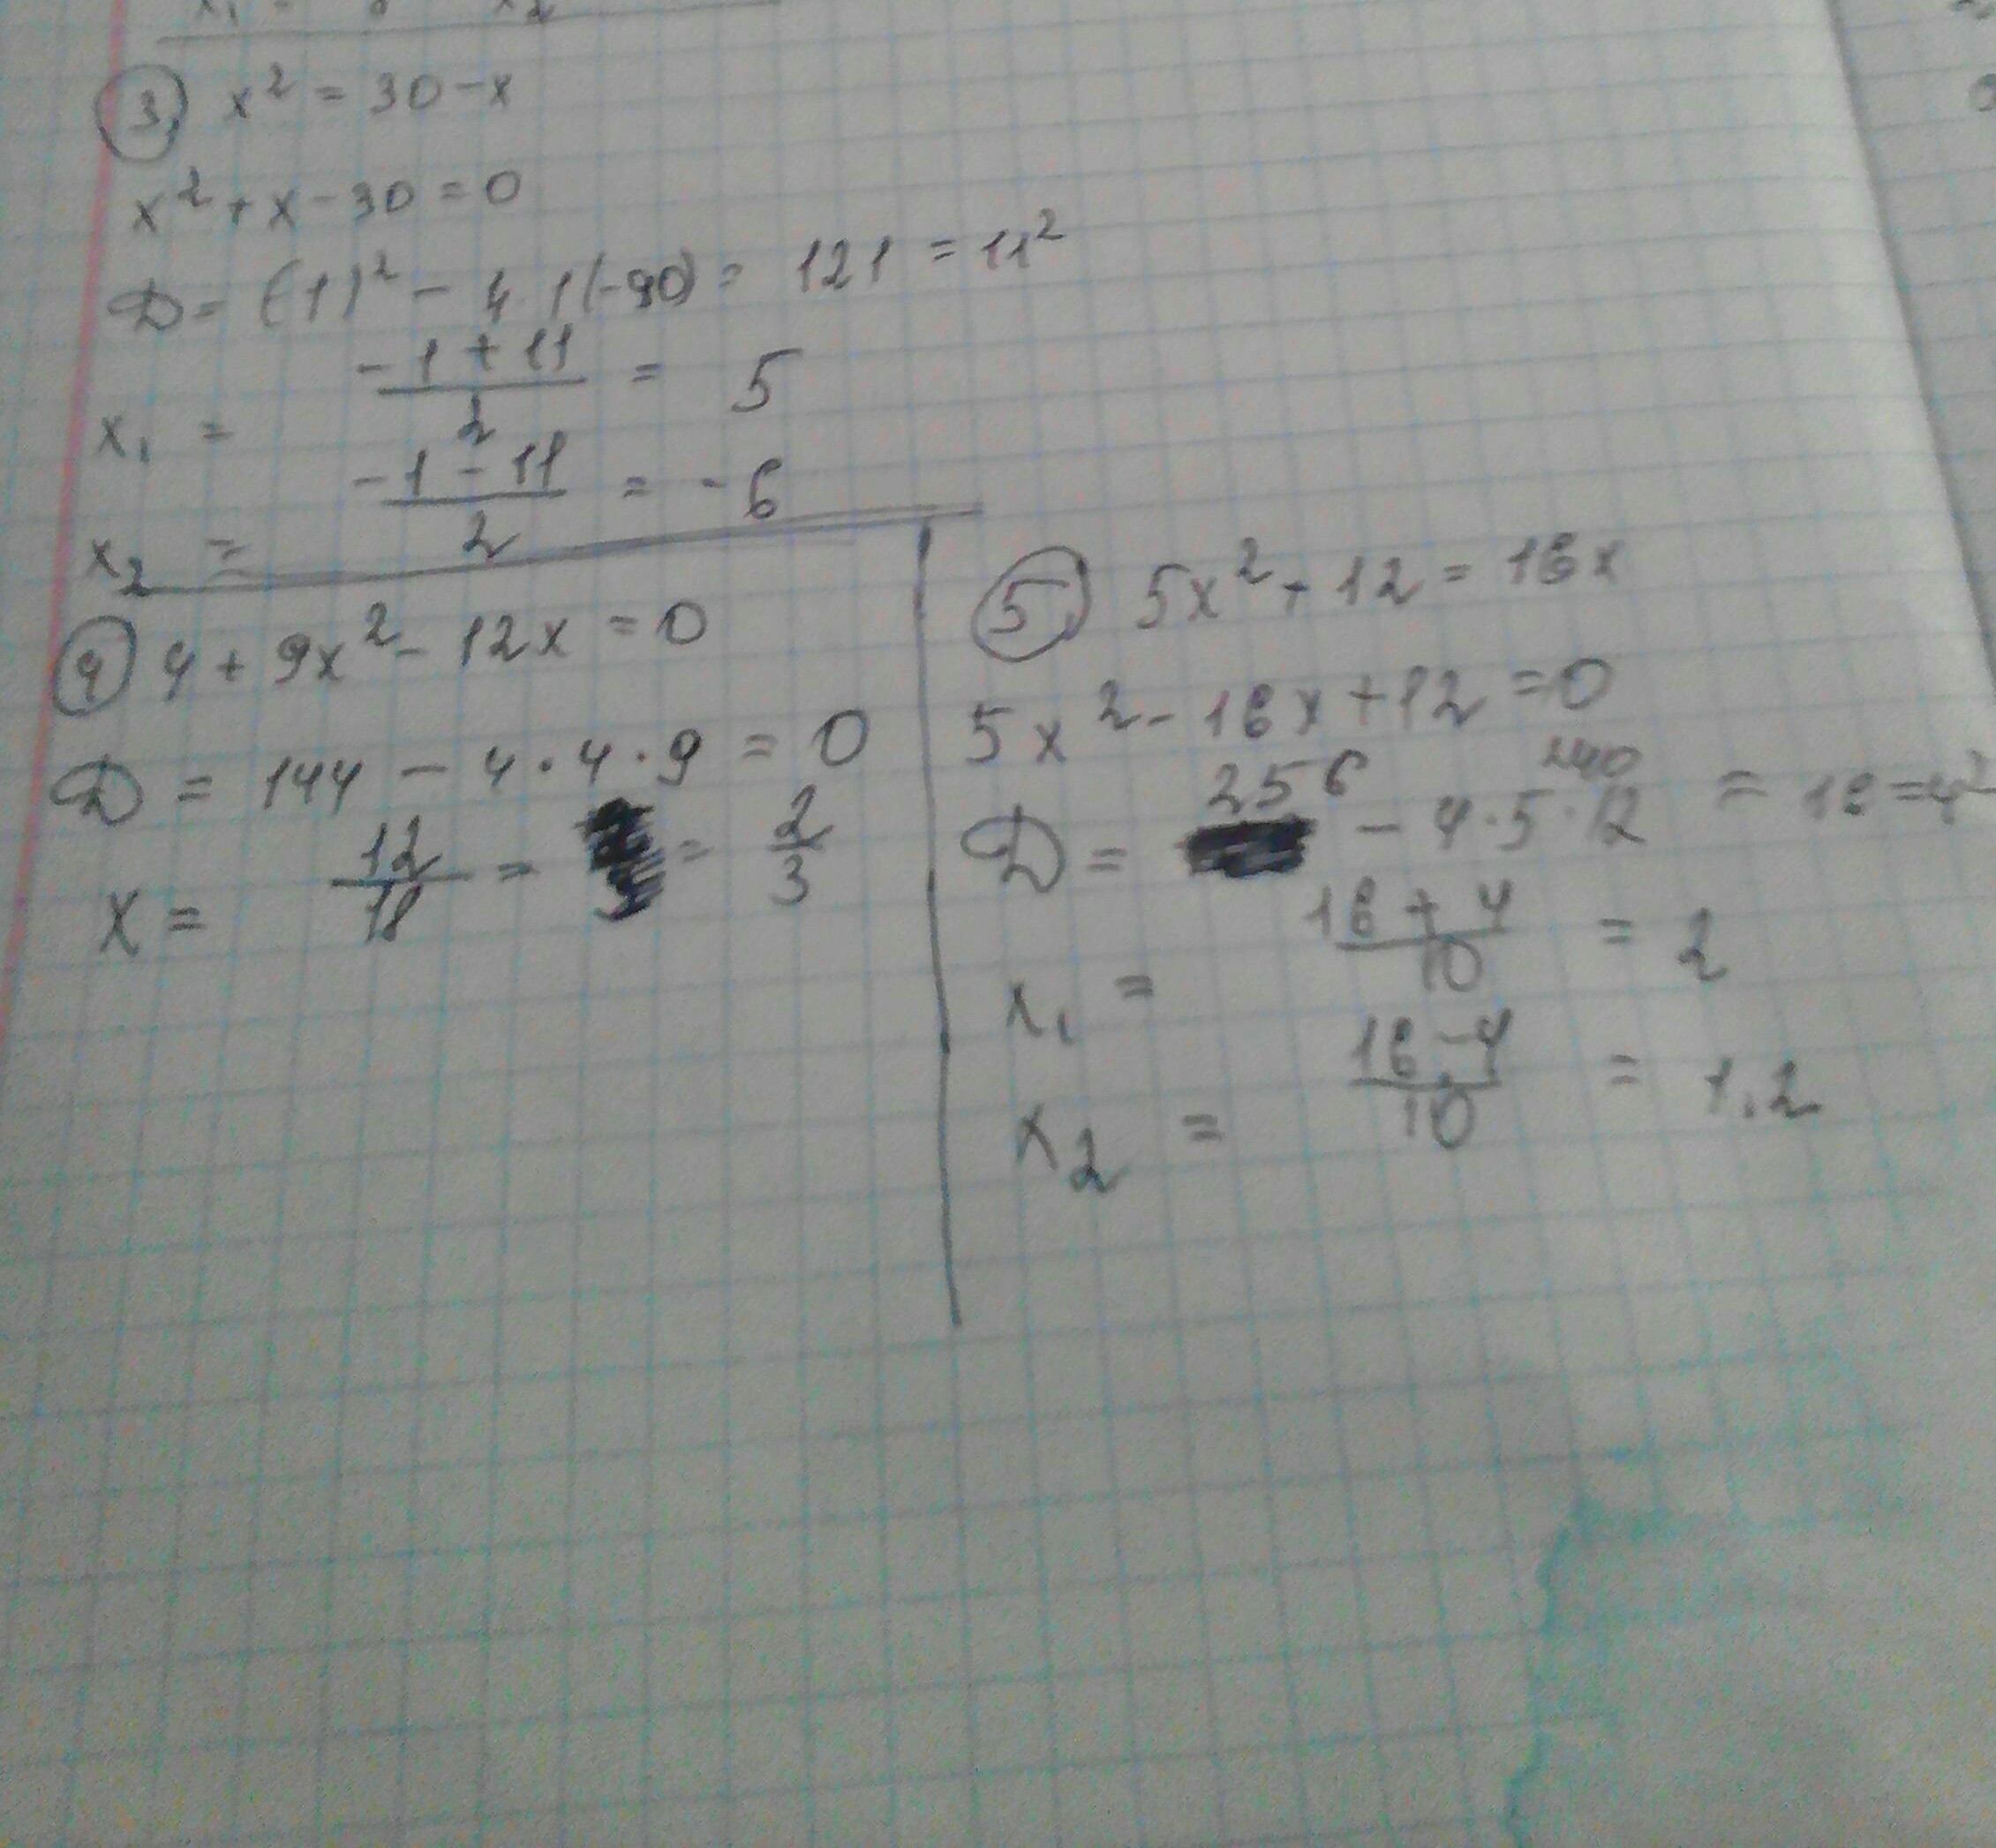 3) x² = 30 - x
x² + x - 30 = 0
D = (1)² - 4·1(-30) = 121 = 11²
x₁ = (-1 + 11)/2 = 5
x₂ = (-1 - 11)/2 = -6
4) 4 + 9x² - 12x = 0
D = 144 - 4·4·9 = 0
x = 12/18 = = 2/3
5) 5x² + 12 = 16x
5x² - 16x + 12 = 0
240
D = 256 - 4·5·12 = 16 = 4²
x₁ = (16 + 4)/10 = 2
x₂ = (16 - 4)/10 = 1.2